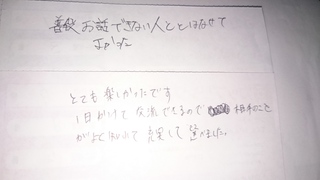 普段お話できない人とはなせて
よかった
とても楽しかったです
1日かけて交流できるので 相手のこと
がよく知れて 充実して 過せました。